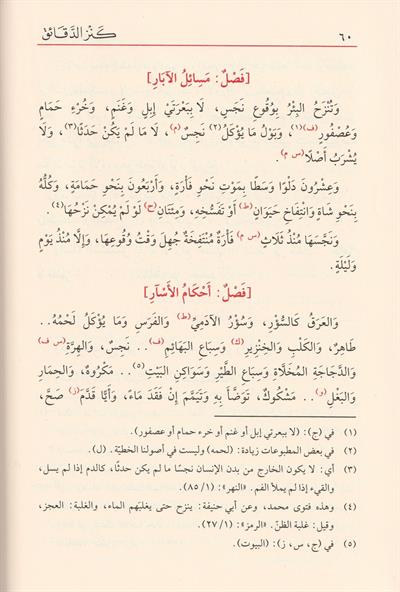 ٦٠ كَنْز الدَّقائق
[فَصْلٌ: مَسائِلُ الآبارِ]
وَتُنْزَحُ البِئْرُ بِوُقُوعِ نَجَسٍ، لَا بِبَعْرتَيْ إِبِلٍ وَغَنَمٍ، وَخُرْءِ حَمَامٍ
وَعُصْفُورٍ(ف)(١)، وَبَوْلُ مَا يُؤْكَلُ(٢) نَجِسٌ(م)، لَا مَا لَمْ يَكُنْ حَدَثًا(٣)، وَلَا
يُشْرَبُ أَصْلًا(س م).
وَعِشْرُونَ دَلْوًا وَسَطًا بِمَوْتِ نَحْوِ فَأْرَةٍ، وَأَرْبَعُونَ بِنَحْوِ حَمَامَةٍ، وَكُلُّهُ
بِنَحْوِ شَاةٍ وَانْتِفَاخِ حَيَوَانٍ(ط) أَوْ تَفَسُّخِهِ، وَمِئَتَانِ(ح) لَوْ لَمْ يُمْكِنْ نَزْحُهَا(٤).
وَنَجَّسَهَا مُنْذُ ثَلَاثٍ(س م) فَأْرَةٌ مُنْتَفِخَةٌ جُهِلَ وَقْتُ وُقُوعِهَا، وَإِلَّا مُنْذُ يَوْمٍ
وَلَيْلَةٍ.
[فَصْلٌ: أَحْكامُ الأَسْآرِ]
وَالعَرَقُ كَالسُّؤْرِ، وَسُؤْرُ الآدَمِيِّ(ط) وَالفَرَسِ وَمَا يُؤْكَلُ لَحْمُهُ..
طَاهِرٌ، وَالكَلْبِ وَالخِنْزِيرِ(ك) وَسِبَاعِ البَهَائِمِ(ف).. نَجِسٌ، وَالهِرَّةِ(س ف)
وَالدَّجَاجَةِ المُخَلَّاةِ وَسِبَاعِ الطَّيْرِ وَسَوَاكِنِ البَيْتِ(٥).. مَكْرُوهٌ، وَالحِمَارِ
وَالبَغْلِ(و).. مَشْكُوكٌ، تَوَضَّأَ بِهِ وَتَيَمَّمَ إِنْ فَقَدَ مَاءً، وَأَيًّا قَدَّمَ(ز) صَحَّ،
(١) في (ج): (لا ببعرتي إبل أو غنم أو خرء حمام أو عصفور).
(٢) في بعض المطبوعات زيادة: (لحمه) وليست في أصولنا الخطيّة. (ل).
(٣) أي: لا يكون الخارج من بدن الإنسان نجسًا ما لم يكن حدثًا، كالدم إذا لم يسل،
والقيء إذا لم يملأ الفم. «النهر»: (١/ ٨٥).
(٤) وهذه فتوى محمد، وعن أبي حنيفة: ينزح حتى يغلبَهم الماء، والغلبة: العجز،
وقيل: غلبة الظنّ. «الرمز»: (١/ ٢٧).
(٥) في (ج، س، ز): (البيوت).